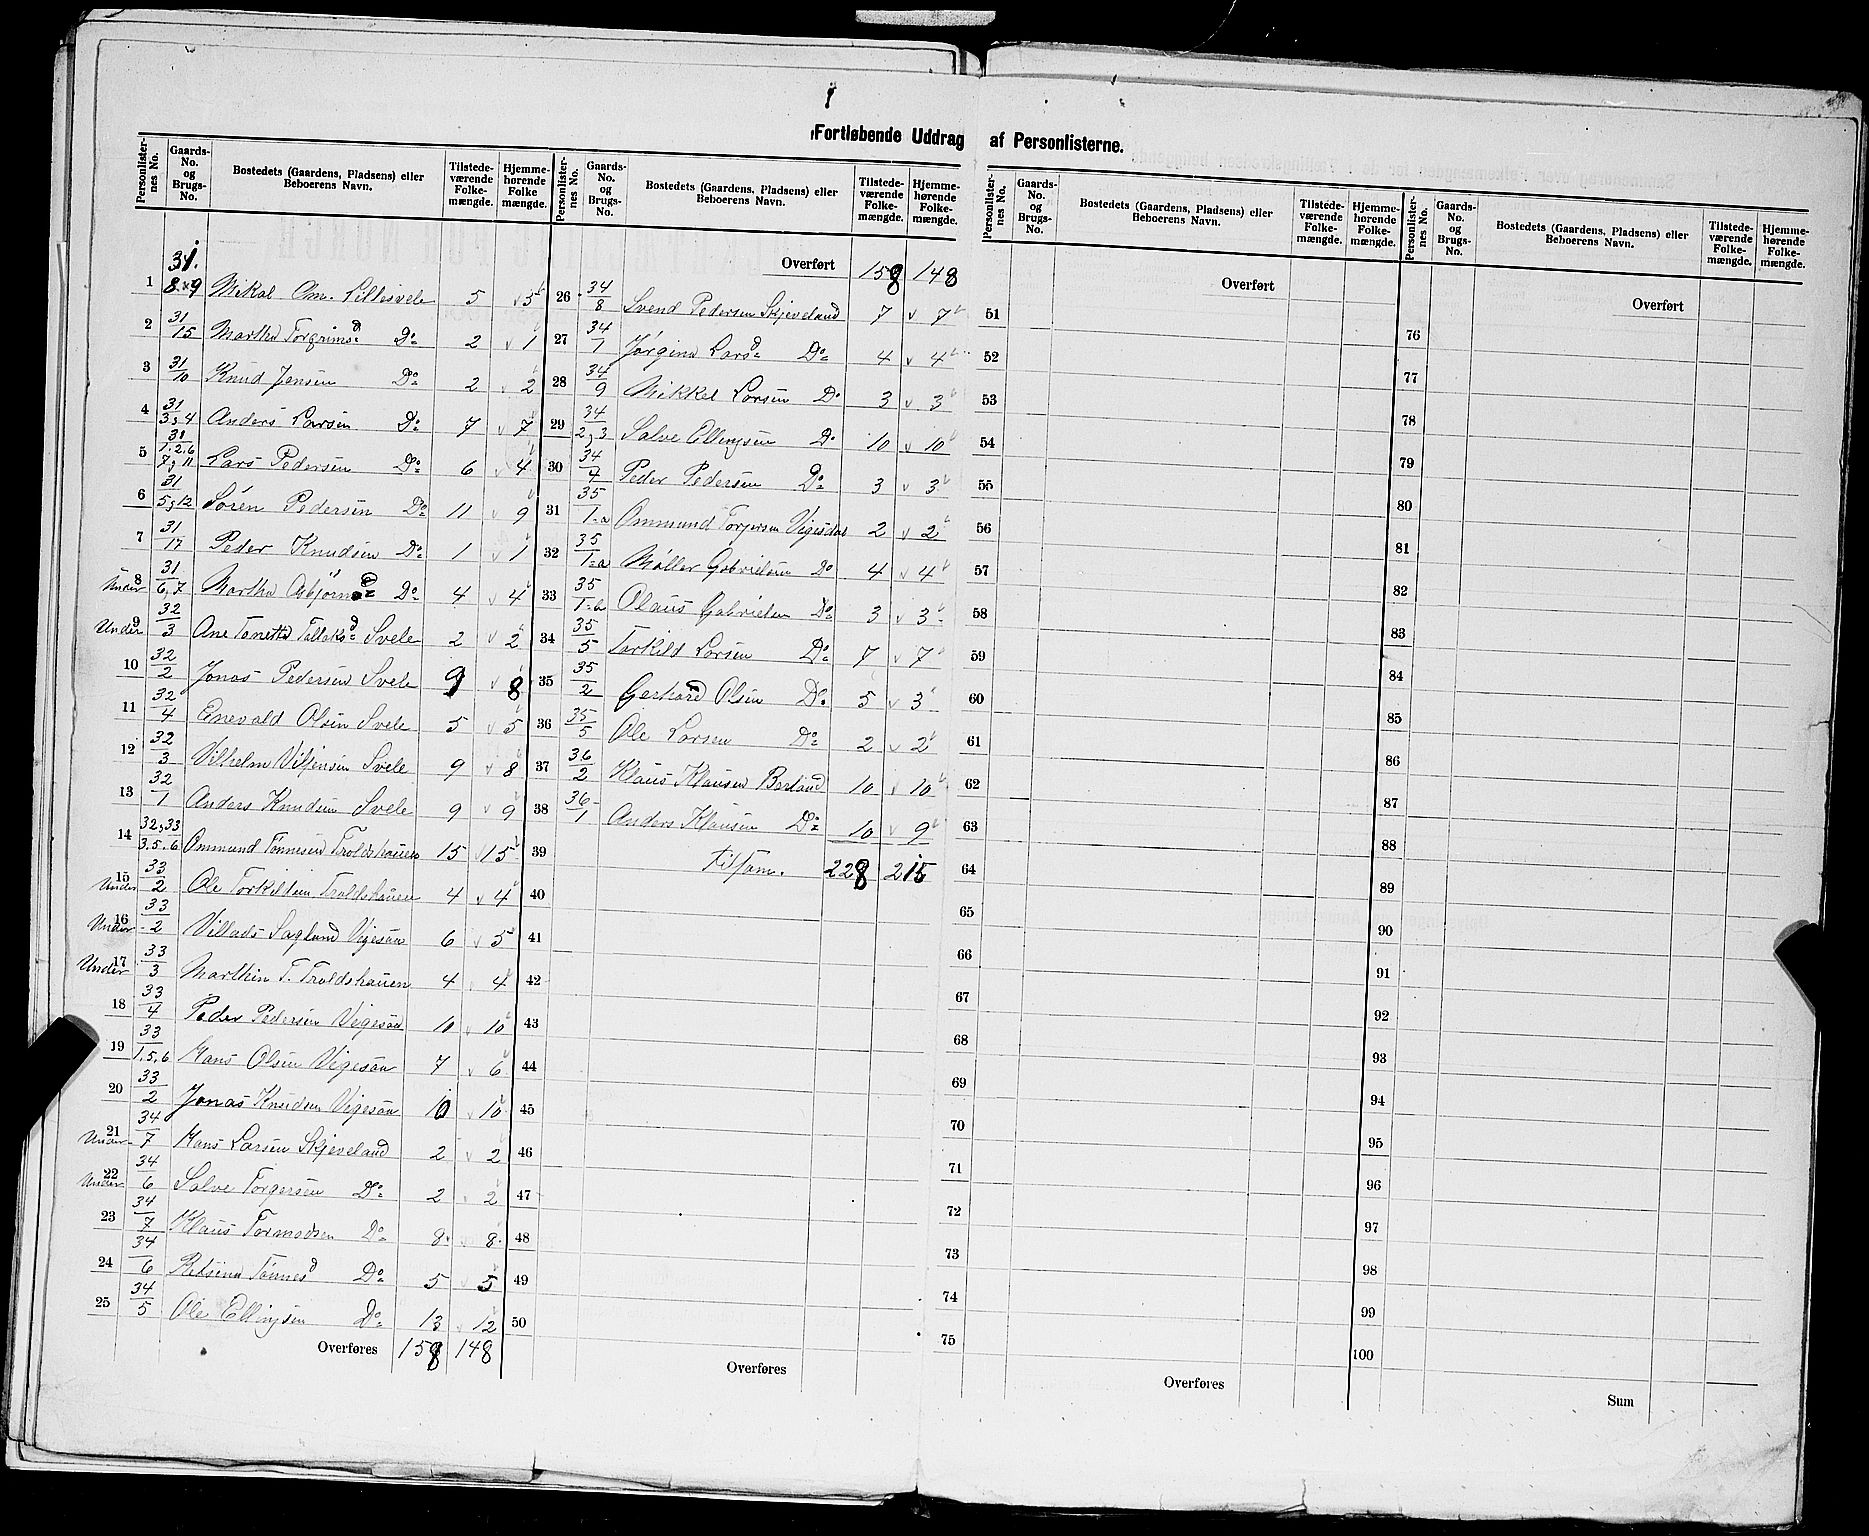 Fortløbende Uddrag af Personlisterne.
Personlister-nes No. | Gaards-No. og Brugs-No. | Bostedets (Gaardens, Pladsens) eller Beboerens Navn. | Tilstede-værende Folke-mængde. | Hjemme-hørende Folke mængde.
1 31. 8 x 9 Mikal Om. Lillesvele 5 v 5
2 31/15 Martha Torgrimsd Do 2 v 1
3 31/10 Knud Jensen Do 2 v 2
4 31/3,4 Anders Larsen Do 7 v 7
5 31/1.2.6 7,11 Lars Pedersen Do 6 v 4
6 31/5,12 Sören Pedersen Do 11 v 9
7 31/17 Peder Knudsen Do 1 v 1
Under 8 31/6,7 Martha Asbjörnsd Do 4 v 4
Under 9 32/3 Ane Tonetta Tallaksd Svele 2 v 2
10 32/2 Jonas Pedersen Svele 9 v 8
11 32/4 Enevald Olsen Svele 5 v 5
12 32/3 Vilhelm Vilhemsen Svele 9 v 8
13 32/1 Anders Knudsen Svele 9 v 9
14 32,33/3.5.6 Ommund Tönnesen Troldshauen 15 v 15
Under 15 33/2 Ole Torkildsen Troldshauen 4 v 4
Under 16 33/2 Villads Sagland Vigesaa 6 v 5
Under 17 33/3 Marthin T. Troldshauen 4 v 4
18 33/4 Peder Pedersen Vigesaa 10 v 10
19 33/1.5.6 Hans Olsen Vigesaa 7 v 6
20 33/2 Jonas Knudsen Vigesaa 10 v 10
Under 21 34/7 Hans Larsen Skjeveland 2 v 2
Under 22 34/6 Salve Torgersen Do 2 v 2
23 34/7 Klaus Tormodsen Do 8 v 8
24 34/6 Tönnesd Do 5 v 5
25 34/5 Ole Ellingsen Do 13 v 12
Overføres 158 148
Personlister-nes No. | Gaards-No. og Brugs-No. | Bostedets (Gaardens, Pladsens) eller Beboerens Navn. | Tilstede-værende Folke-mængde. | Hjemme-hørende Folke-mængde.
Overført 158 148
26 34/8 Svend Pedersen Skjeveland 7 v 7
27 34/1 Jörgine Larsd Do 4 v 4
28 34/9 Mikkel Larsen Do 3 v 3
29 34/2,3 Salve Ellingsen Do 10 v 10
30 34/4 Peder Pedersen Do 3 v 3
31 35/1-a Ommund Torgersen Vigesdal 2 v 2
32 35/1-a Møller Gabrielsen Do 4 v 4
33 35/1-b Olaus Gabrielsen Do 3 v 3
34 35/5 Torkild Larsen Do 7 v 7
35 35/2 Gerhard Olsen Do 5 v 3
36 35/5 Ole Larsen Do 2 v 2
37 36/2 Klaus Klausen Berland 10 v 10
38 36/1 Anders Klausen Do 10 v 9
39 tilsam. 228 215
40
41
42
43
44
45
46
47
48
49
50
Overføres
Personlister-nes No. | Gaards-No. og Brugs-No. | Bostedets (Gaardens, Pladsens) eller Beboerens Navn. | Tilstede-værende Folke-mængde. | Hjemme-hørende Folke-mængde.
Overført
51
52
53
54
55
56
57
58
59
60
61
62
63
64
65
66
67
68
69
70
71
72
73
74
75
Overføres
Personlister-nes No. | Gaards-No. og Brugs-No. | Bostedets (Gaardens, Pladsens) eller Beboerens Navn. | Tilstede-værende Folke-mængde. | Hjemme-hørende Folke-mængde.
Overført
76
77
78
79
80
81
82
83
84
85
86
87
88
89
90
91
92
93
94
95
96
97
98
99
100
Sum